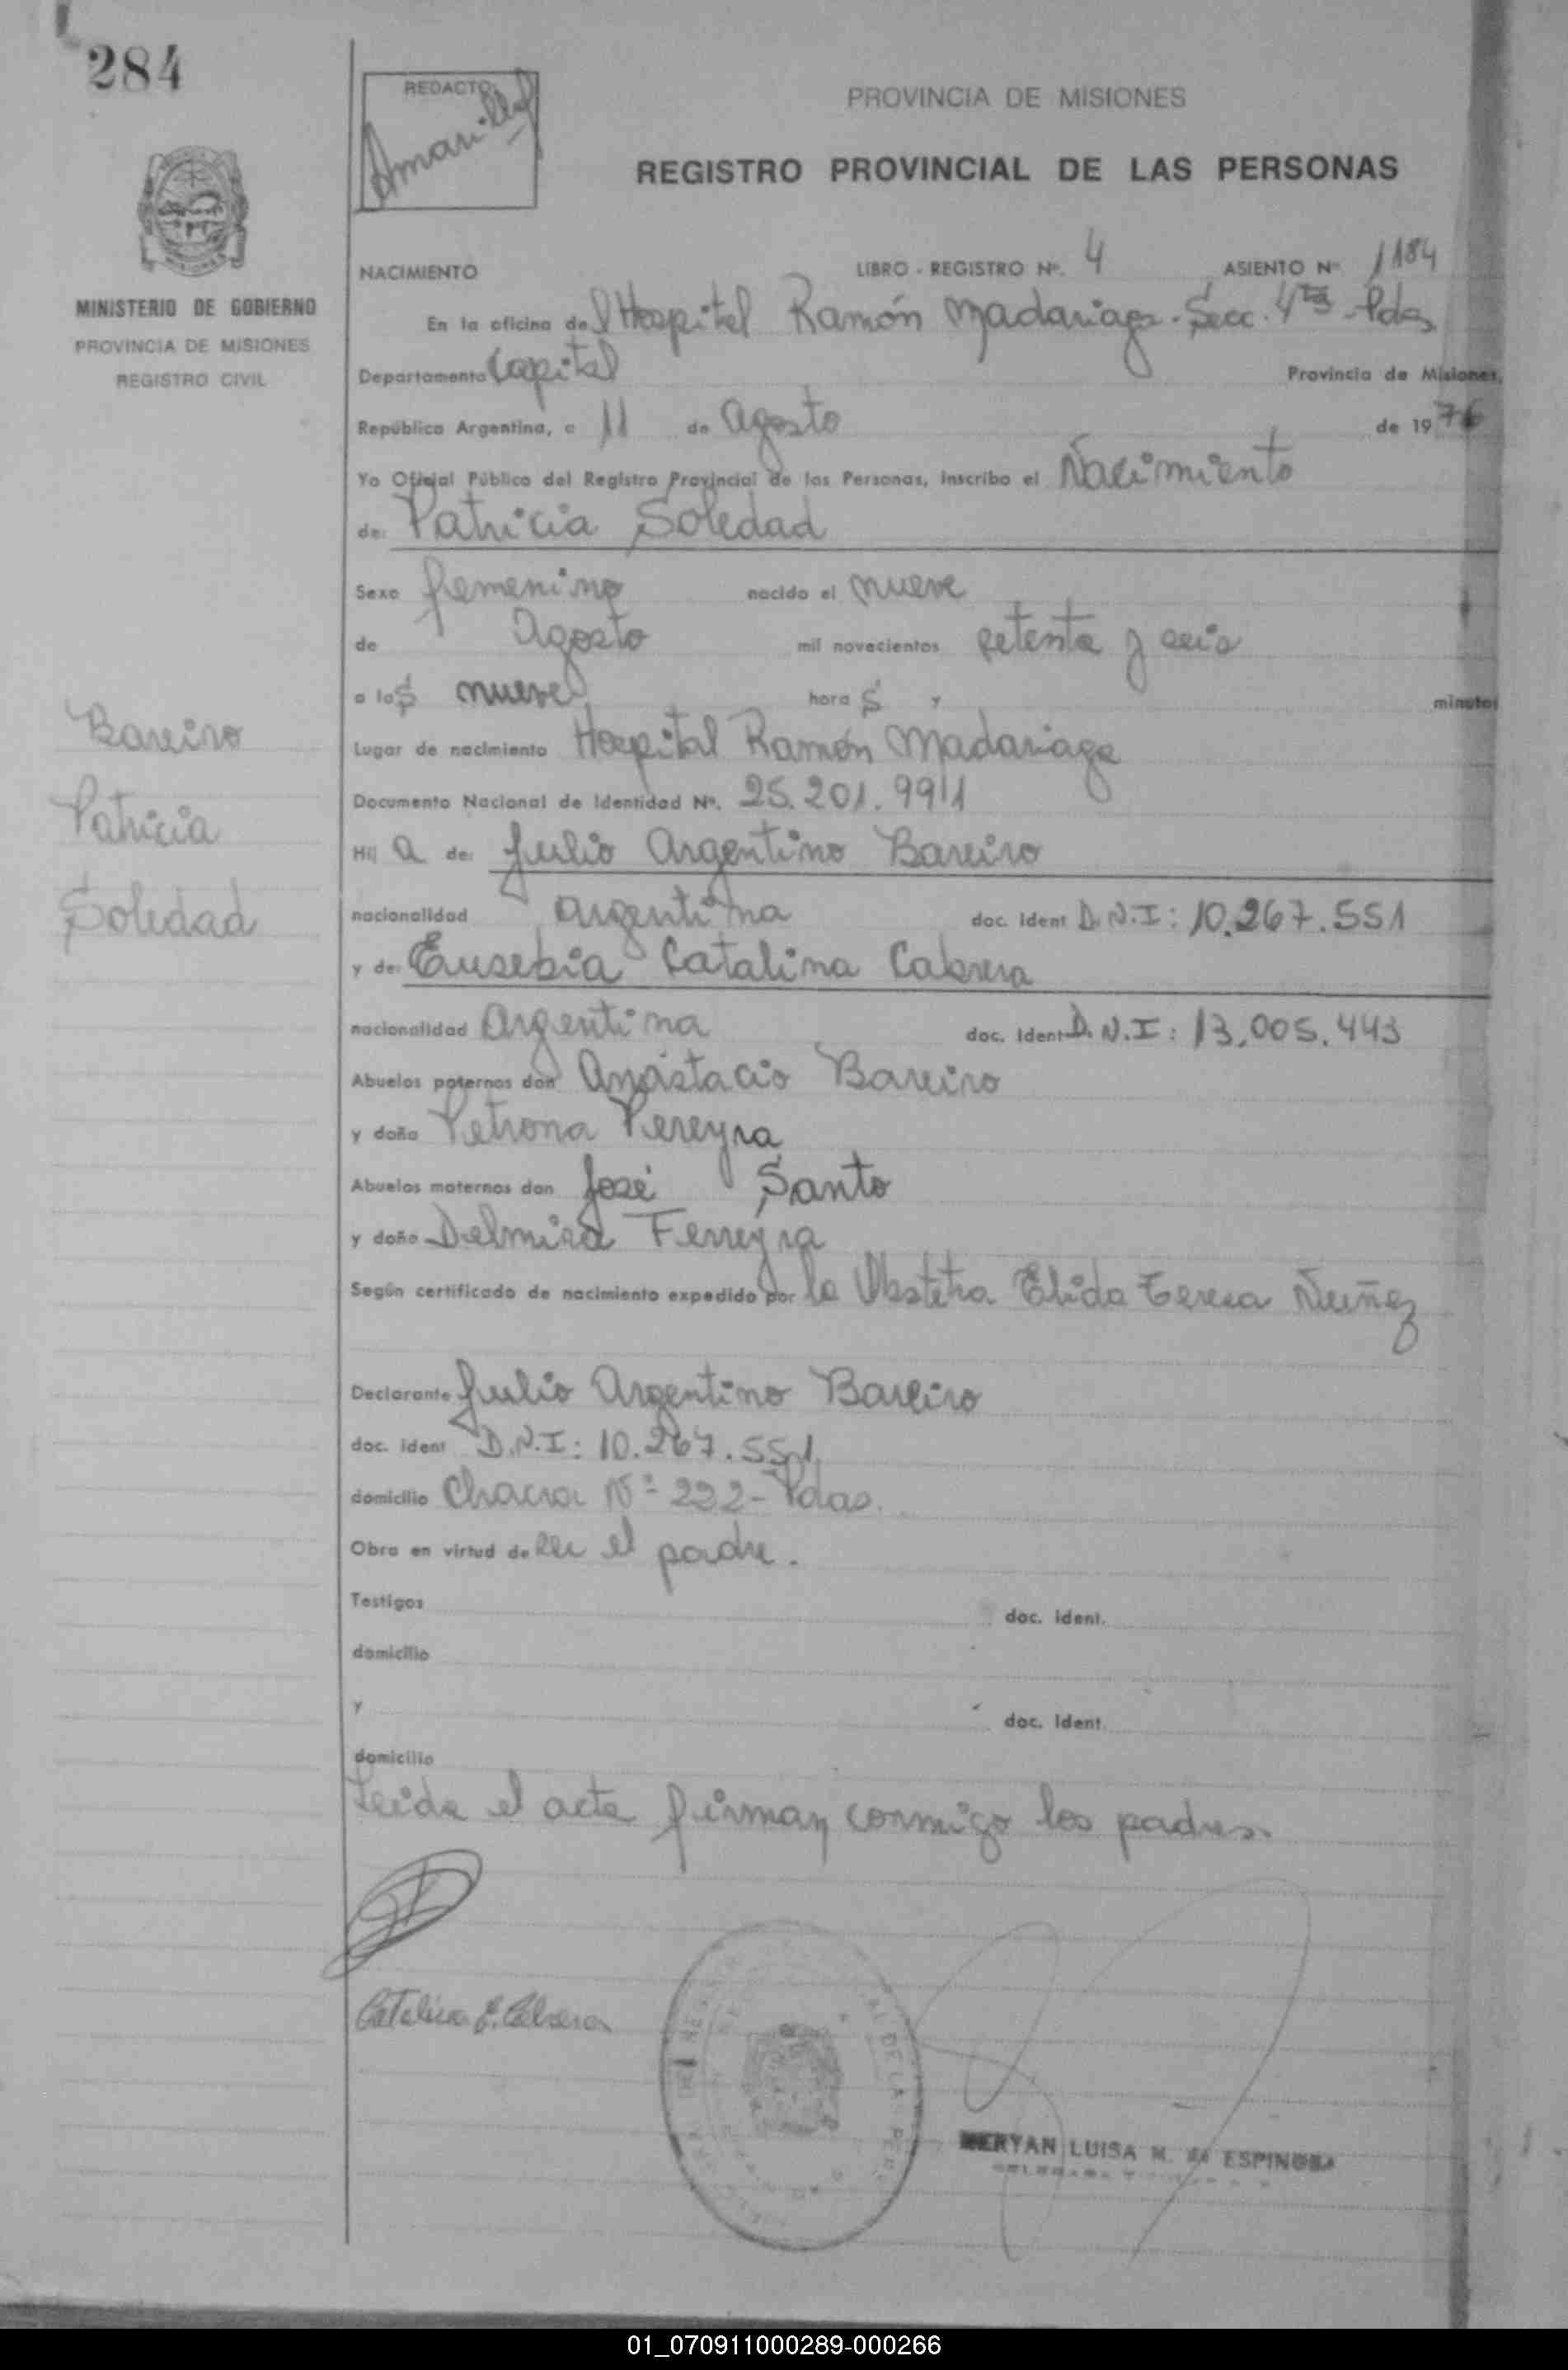 284
REDACTO:
Amarilla
PROVINCIA DE MISIONES
REGISTRO PROVINCIAL DE LAS PERSONAS
MINISTERIO DE GOBIERNO
PROVINCIA DE MISIONES
REGISTRO CIVIL
NACIMIENTO LIBRO - REGISTRO Nº. 4 ASIENTO Nº 1184
En la oficina del Hospital Ramón Madariaga - Secc. 4ta - Pdas
Departamento Capital Provincia de Misiones,
República Argentina, a 11 de Agosto de 1976
Yo Oficial Público del Registro Provincial de las Personas, inscribo el Nacimiento
de: Patricia Soledad
Sexo femenino nacido el nueve
de Agosto mil novecientos setenta y seis
a las nueve horas y minutos
Lugar de nacimiento Hospital Ramón Madariaga
Documento Nacional de Identidad Nº. 25.201.991
Hij a de: Julio Argentino Bareiro
nacionalidad argentina doc. ident D.N.I: 10.267.551
y de: Eusebia Catalina Cabrera
nacionalidad Argentina doc. ident D.N.I: 13.005.443
Abuelos paternos don Anastacio Bareiro
y doña Petrona Pereyra
Abuelos maternos don José Santo
y doña Delmira Ferreyra
Según certificado de nacimiento expedido por la Obstetra Elida Teresa Nuñez
Declarante Julio Argentino Bareiro
doc. ident D.N.I: 10.267.551
domicilio Chacra Nº 222 - Pdas.
Obra en virtud de ser el padre.
Testigos doc. ident.
domicilio
y doc. ident.
domicilio
Leida el acta firman conmigo los padres.
Catalina E. Cabrera
MERYAN LUISA M. de ESPINOSA
Bareiro
Patricia
Soledad
01_070911000289-000266